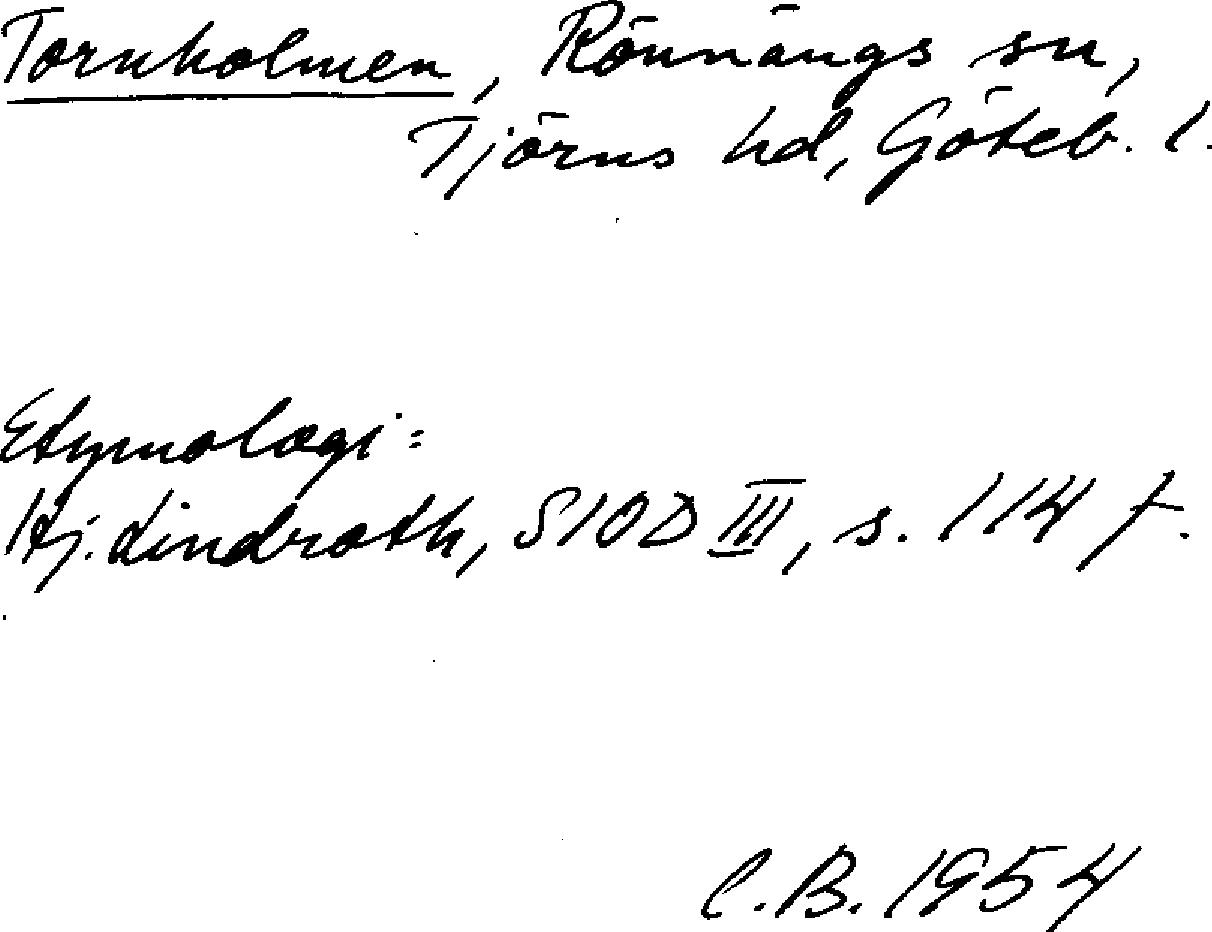 Tornholmen, Rönnängs sn,
Tjörns hd, Göteb. l.
Etymologi:
Hj. Lindroth, SIOD III, s. 114 f.
C.B. 1954